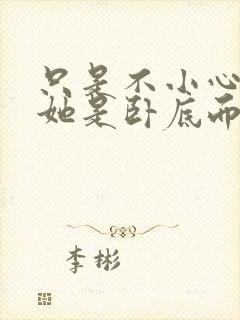 只是不小心
她是卧底而
李彬